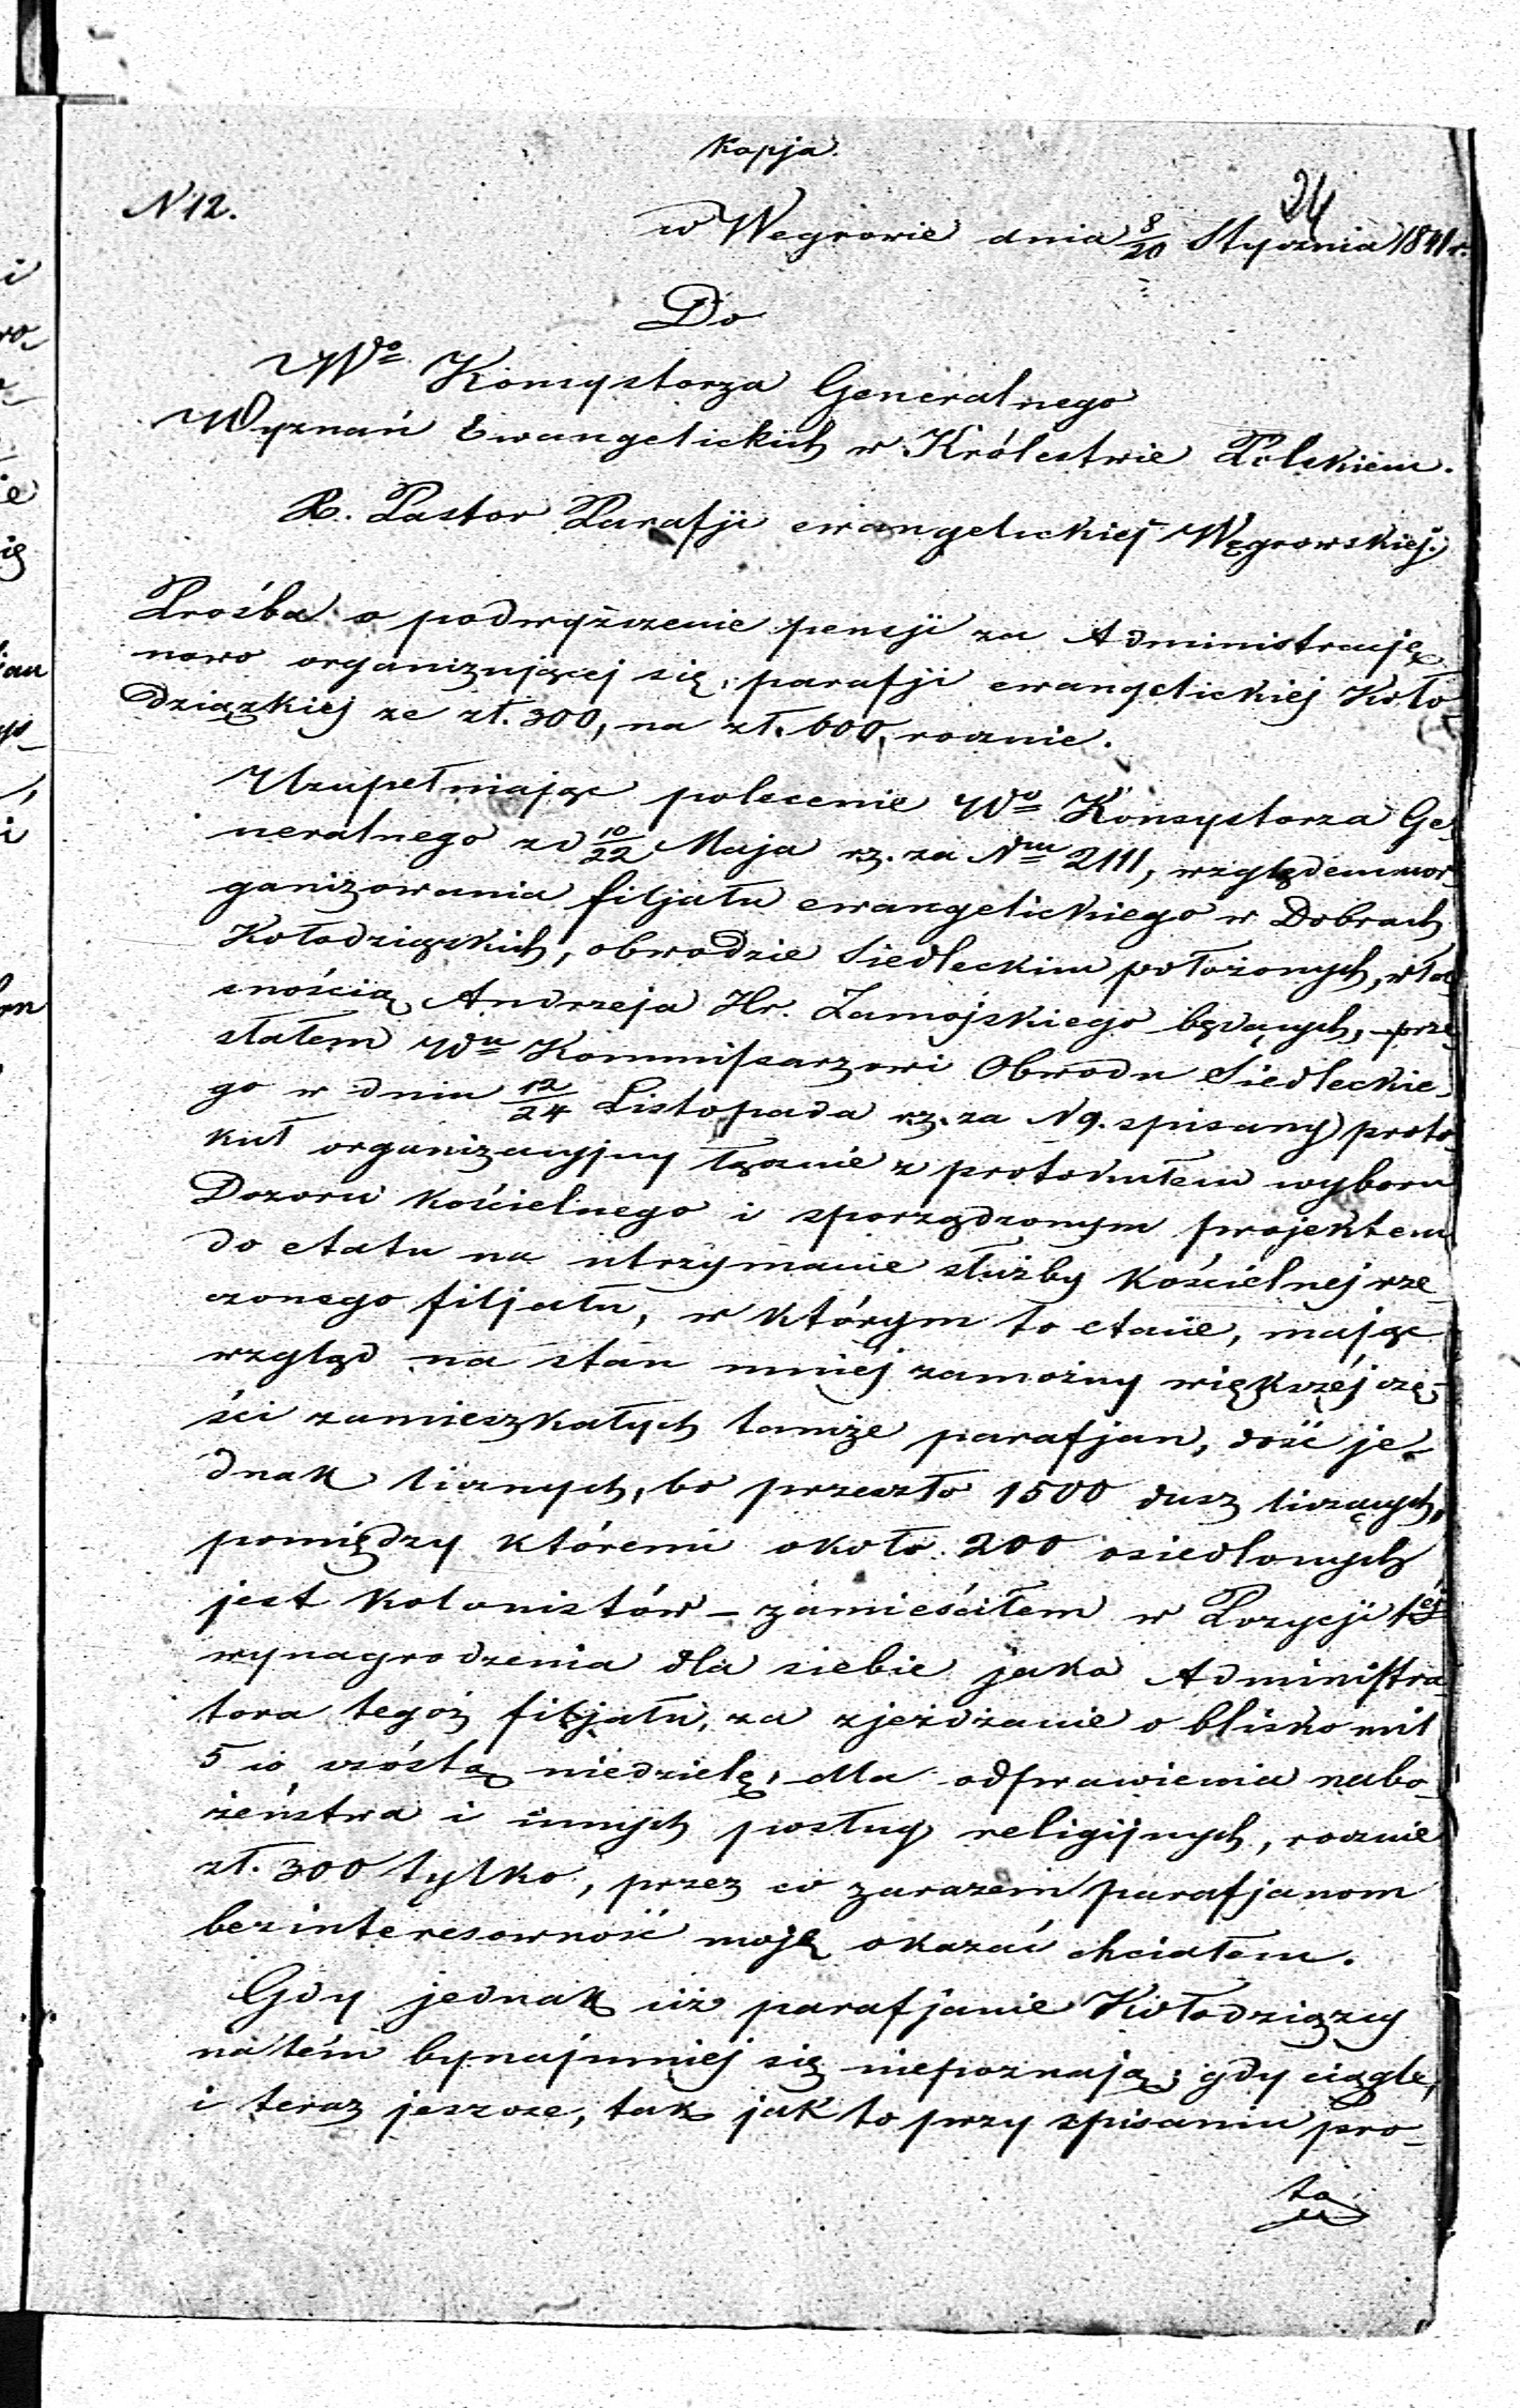 Kopja.
N 12.
24
w Węgrowie dnia 8/20 Stycznia 1841 r.
Do
Wo Konsystorza Generalnego
Wyznań Ewangelickich w Królestwie Polskiem.
X. Pastor Parafji ewangelickiej Węgrowskiej.
Prośba o podwyższenie pensji za Administrację
nowo organizującej się parafji ewangelickiej Koło-
dziązkiej ze zł. 300, na zł. 600, rocznie.
Uzupełniając polecenie Wo Konsystorza Ge-
neralnego zd 10/22 Maja rz. za Nm 2111, względem zor-
ganizowania filjału ewangelickiego w Dobrach
Kołodziązkich, obwodzie Siedleckim położonych, wła-
snością Andrzeja Hr. Zamojskiego będących, – prze-
słałem Wu Kommissarzowi Obwodu Siedleckie-
go w dniu 12/24 Listopada rz. za N 9. spisany proto-
kuł organizacyjny łącznie z protokułem wyboru
Dozoru kościelnego i sporządzonym projektem
do etatu na utrzymanie służby kościelnej rze-
czonego filjału, w którym to etacie, mając
wzgląd na stan mniej zamożny większéj czę-
ści zamieszkałych tamże parafjan, dość je-
dnak licznych, bo przeszło 1500 dusz liczących,
pomiędzy któremi około 200 osiedlonych
jest kolonistów – zamieściłem w Pozycji 1éj
wynagrodzenia dla siebie jako Administra-
tora tegoż filjału, za zjeżdżanie o blisko mil
5 co szóstą niedzielę, dla odprawienia nabo-
żeństwa i innych posług religijnych, rocznie
zł. 300 tylko, przez co zarazem parafjanom
bezinteresowność moję okazać chciałem.
Gdy jednak iż parafjanie Kołodziązcy
na tém bynajmniej się niepoznają; gdy ciągle,
i teraz jeszcze, tak jak to przy spisaniu pro-
to